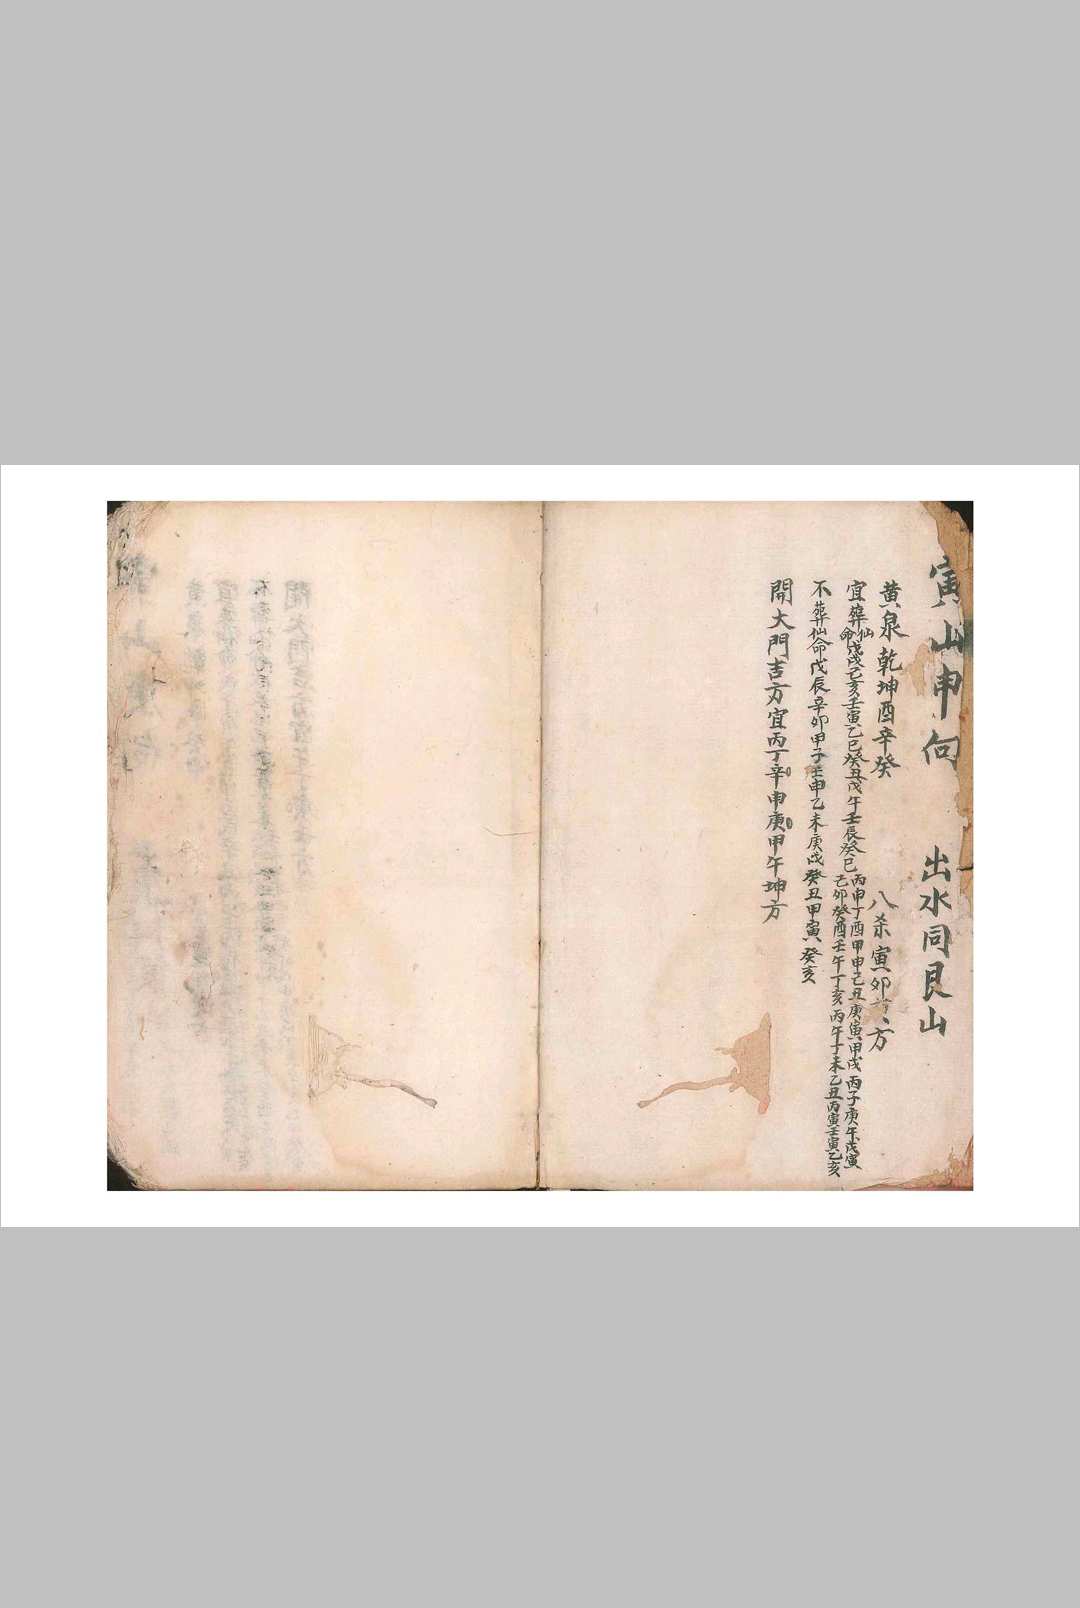 寅山申向　出水同艮山
黄泉乾坤酉辛癸　八杀寅卯　方
宜葬仙命戊戌己亥壬寅乙巳癸丑戊午壬辰癸巳丙申丁酉甲申己丑庚寅甲戌丙子庚午戊寅
己卯癸酉壬午丁亥丙午丁未乙丑丙寅壬寅乙亥
不葬仙命戊辰辛卯甲子壬申乙未庚戌癸丑甲寅癸亥
開大門吉方宜丙丁辛申庚甲午坤方